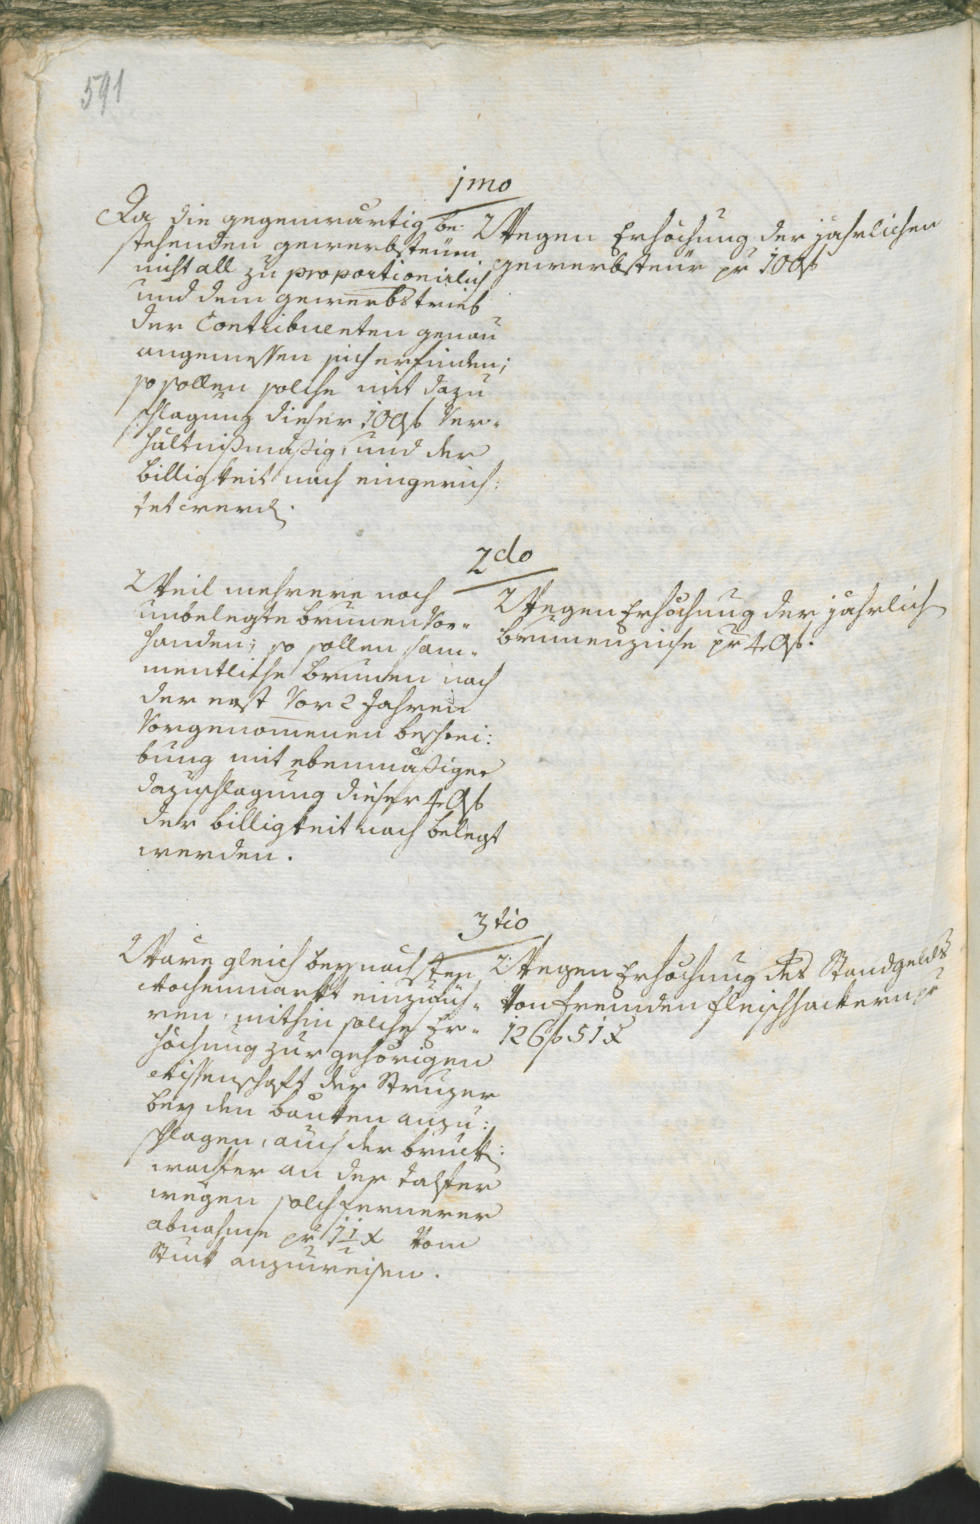 591
1mo
Da die gegenwärtig be:
stehenden gewerbsteüern
nicht all zu proportionirlich
und dem gewerbstrieb
der Contribuenten genau
angemessen sich erfinden;
so sollen solche mit dazu
schlagung dieser 100f Ver=
hältnißmäßig, und der
billigkeit nach eingerich:
tet werd.
Wegen Erhöchung der jährlichen
gewerbsteür pr 100f
2do
Weil mehrere noch
unbelegte brunen Vor=
handen; so sollen sam=
mentliche brunen nach
der erst Vor 2 Jahren
Vorgenomenen beschrei:
bung mit ebenmäßiger
dazuschlagung dieser 40f
der billigkeit nach belegt
werden.
Wegen Erhöchung der jährlich
brunenzinse pr 40f.
3tio
Wäre gleich bey nächsten
Wochenmarkt einzufüh=
ren, mithin solche Er=
höchung zur gehörigen
wissenschaft der
bey den bänken anzu:
schlagen, auch der bruck:
wachter an der talfer
wegen solch fernerer
abnahme pr 1½ x Vom
Stuck anzuweisen.
Wegen Erhöchung des Standgelds
Von fremden fleischhackern pr
126f 51x